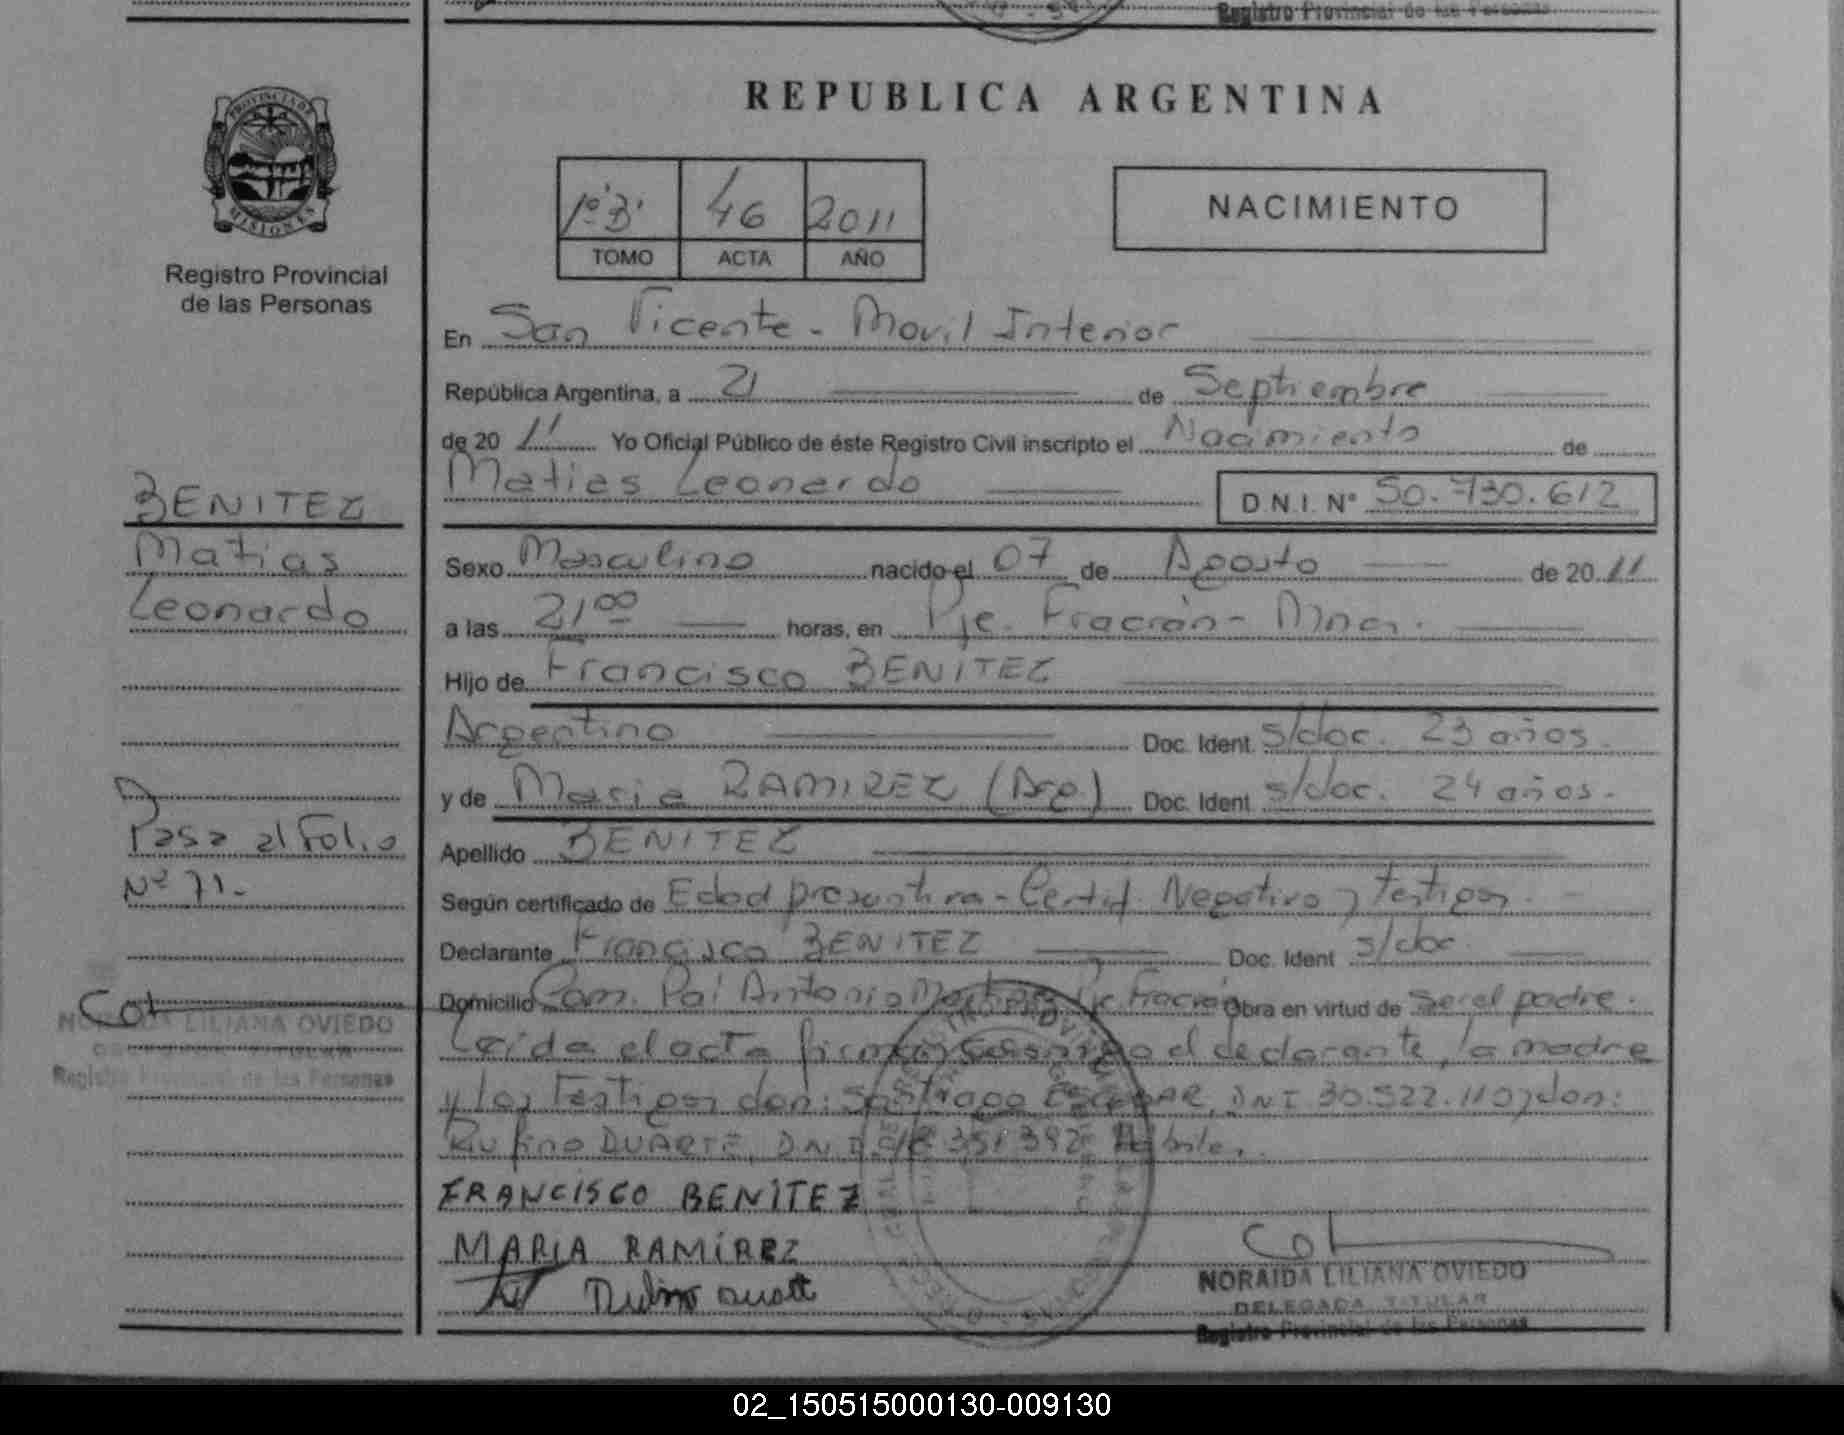 Registro Provincial de las Personas
REPUBLICA ARGENTINA
PROVINCIA DE
MISIONES
Registro Provincial
de las Personas
1º"B" 46 2011
TOMO ACTA AÑO
NACIMIENTO
En San Vicente - Movil Interior
República Argentina, a 21 de Septiembre
de 20 11 Yo Oficial Público de éste Registro Civil inscripto el Nacimiento de
Matias Leonardo D.N.I. Nº 50.730.612
BENITEZ
Matias
Leonardo
Sexo Masculino nacido el 07 de Agosto de 20 11
a las 21 00 horas, en Pje. Fracrán - Mnes.
Hijo de Francisco BENITEZ
Argentino Doc. Ident. s/doc. 23 años.
y de Maria RAMIREZ (Arg.) Doc. Ident. s/doc. 24 años.
Pasa al Folio
Nº 71-
Apellido BENITEZ
Según certificado de Edad presuntiva - Certif. Negativo y Testigos.
Declarante Francisco BENITEZ Doc. Ident s/doc.
Domicilio Com. Pai Antonio Pje Fracrán Obra en virtud de ser el padre.
Leida el acta firman conmigo el declarante, la madre
y los Testigos don: Santiago ESCOBAR, DNI 30.522.110 y don:
Rufino DUARTE, D.N.I. 18 351 392
FRANCISCO BENITEZ
MARIA RAMÍREZ
NORAIDA LILIANA OVIEDO
DELEGADA TITULAR
Registro Provincial de las Personas
NORAIDA LILIANA OVIEDO
Registro Provincial de las Personas
02_150515000130-009130